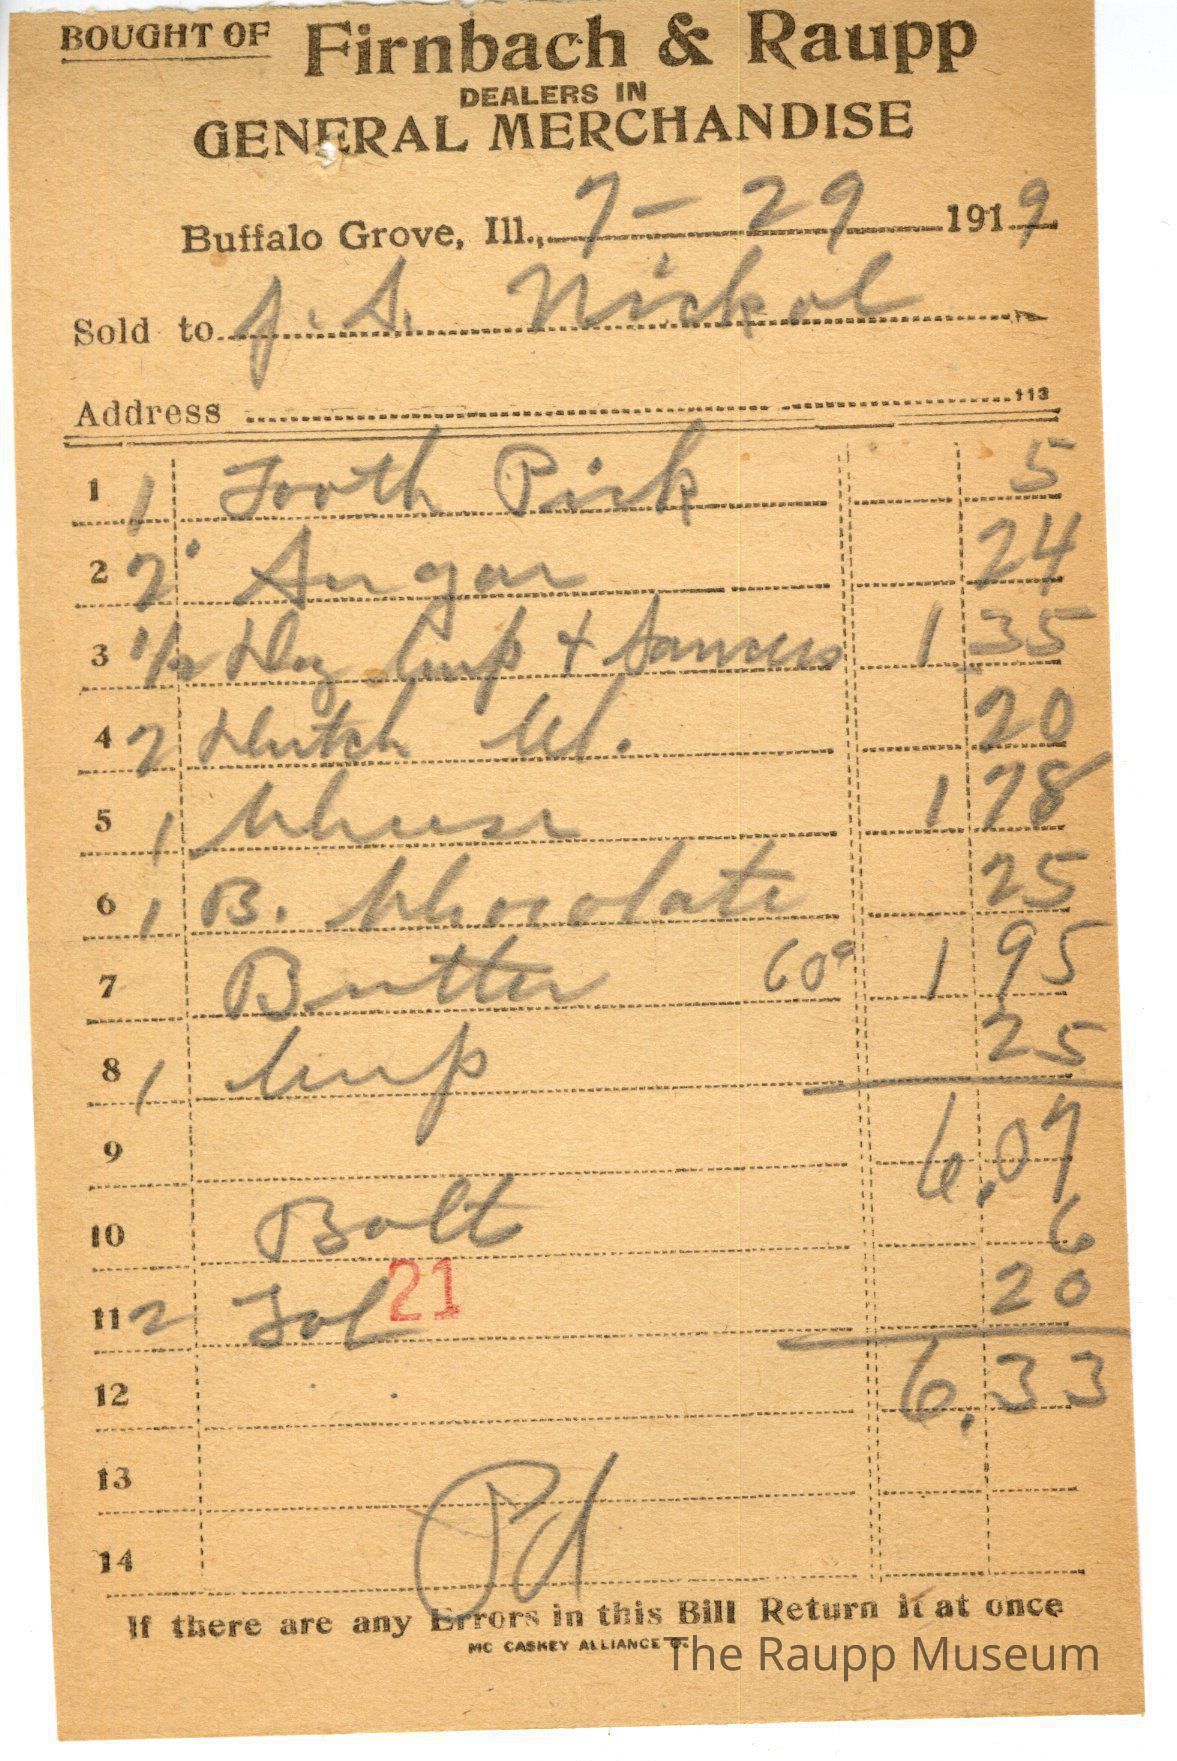 BOUGHT OF Firnbach & Raupp
DEALERS IN
GENERAL MERCHANDISE
Buffalo Grove, Ill., 7-29 1919
Sold to J. S. Nickol
Address 113
1 1 Tooth Pick 5
2 2 Sugar 24
3 1/2 Doz Cup & Saucers 1 35
4 2 Dutch Cl. 20
5 1 Cheese 1 78
6 1 B. Chocolate 25
7 Butter 60¢ 1 95
8 1 Cup 25
9 6.07
10 Bolt 6
11 2 Jol 20
21
12 6.33
13
Pd
14
If there are any Errors in this Bill Return it at once
MC CASKEY ALLIANCE O.
The Raupp Museum